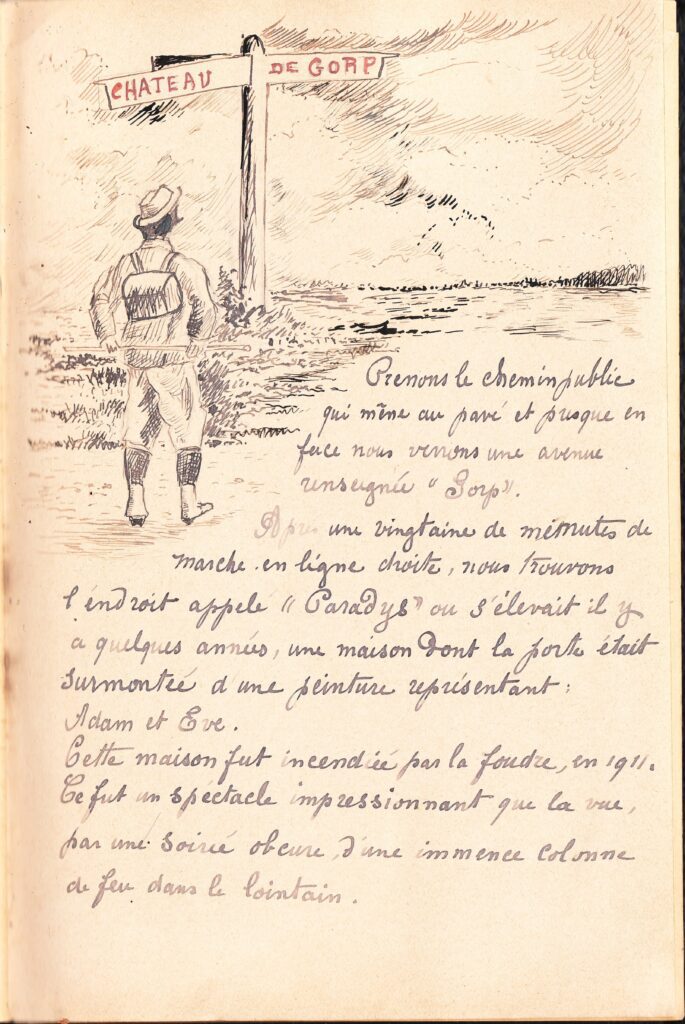 CHATEAU DE GORP
Prenons le chemin public
qui mène au pavé et presque en
face nous verrons une avenue
renseignée "Gorp".
Après une vingtaine de minutes de
marche en ligne droite, nous trouvons
l'endroit appelé "Paradys" ou s'élevait il y
a quelques années, une maison dont la porte était
surmontée d'une peinture représentant :
Adam et Eve.
Cette maison fut incendiée par la foudre, en 1911.
Ce fut un spectacle impressionnant que la vue,
par une soirée obcure, d'une immence colonne
de feu dans le lointain.